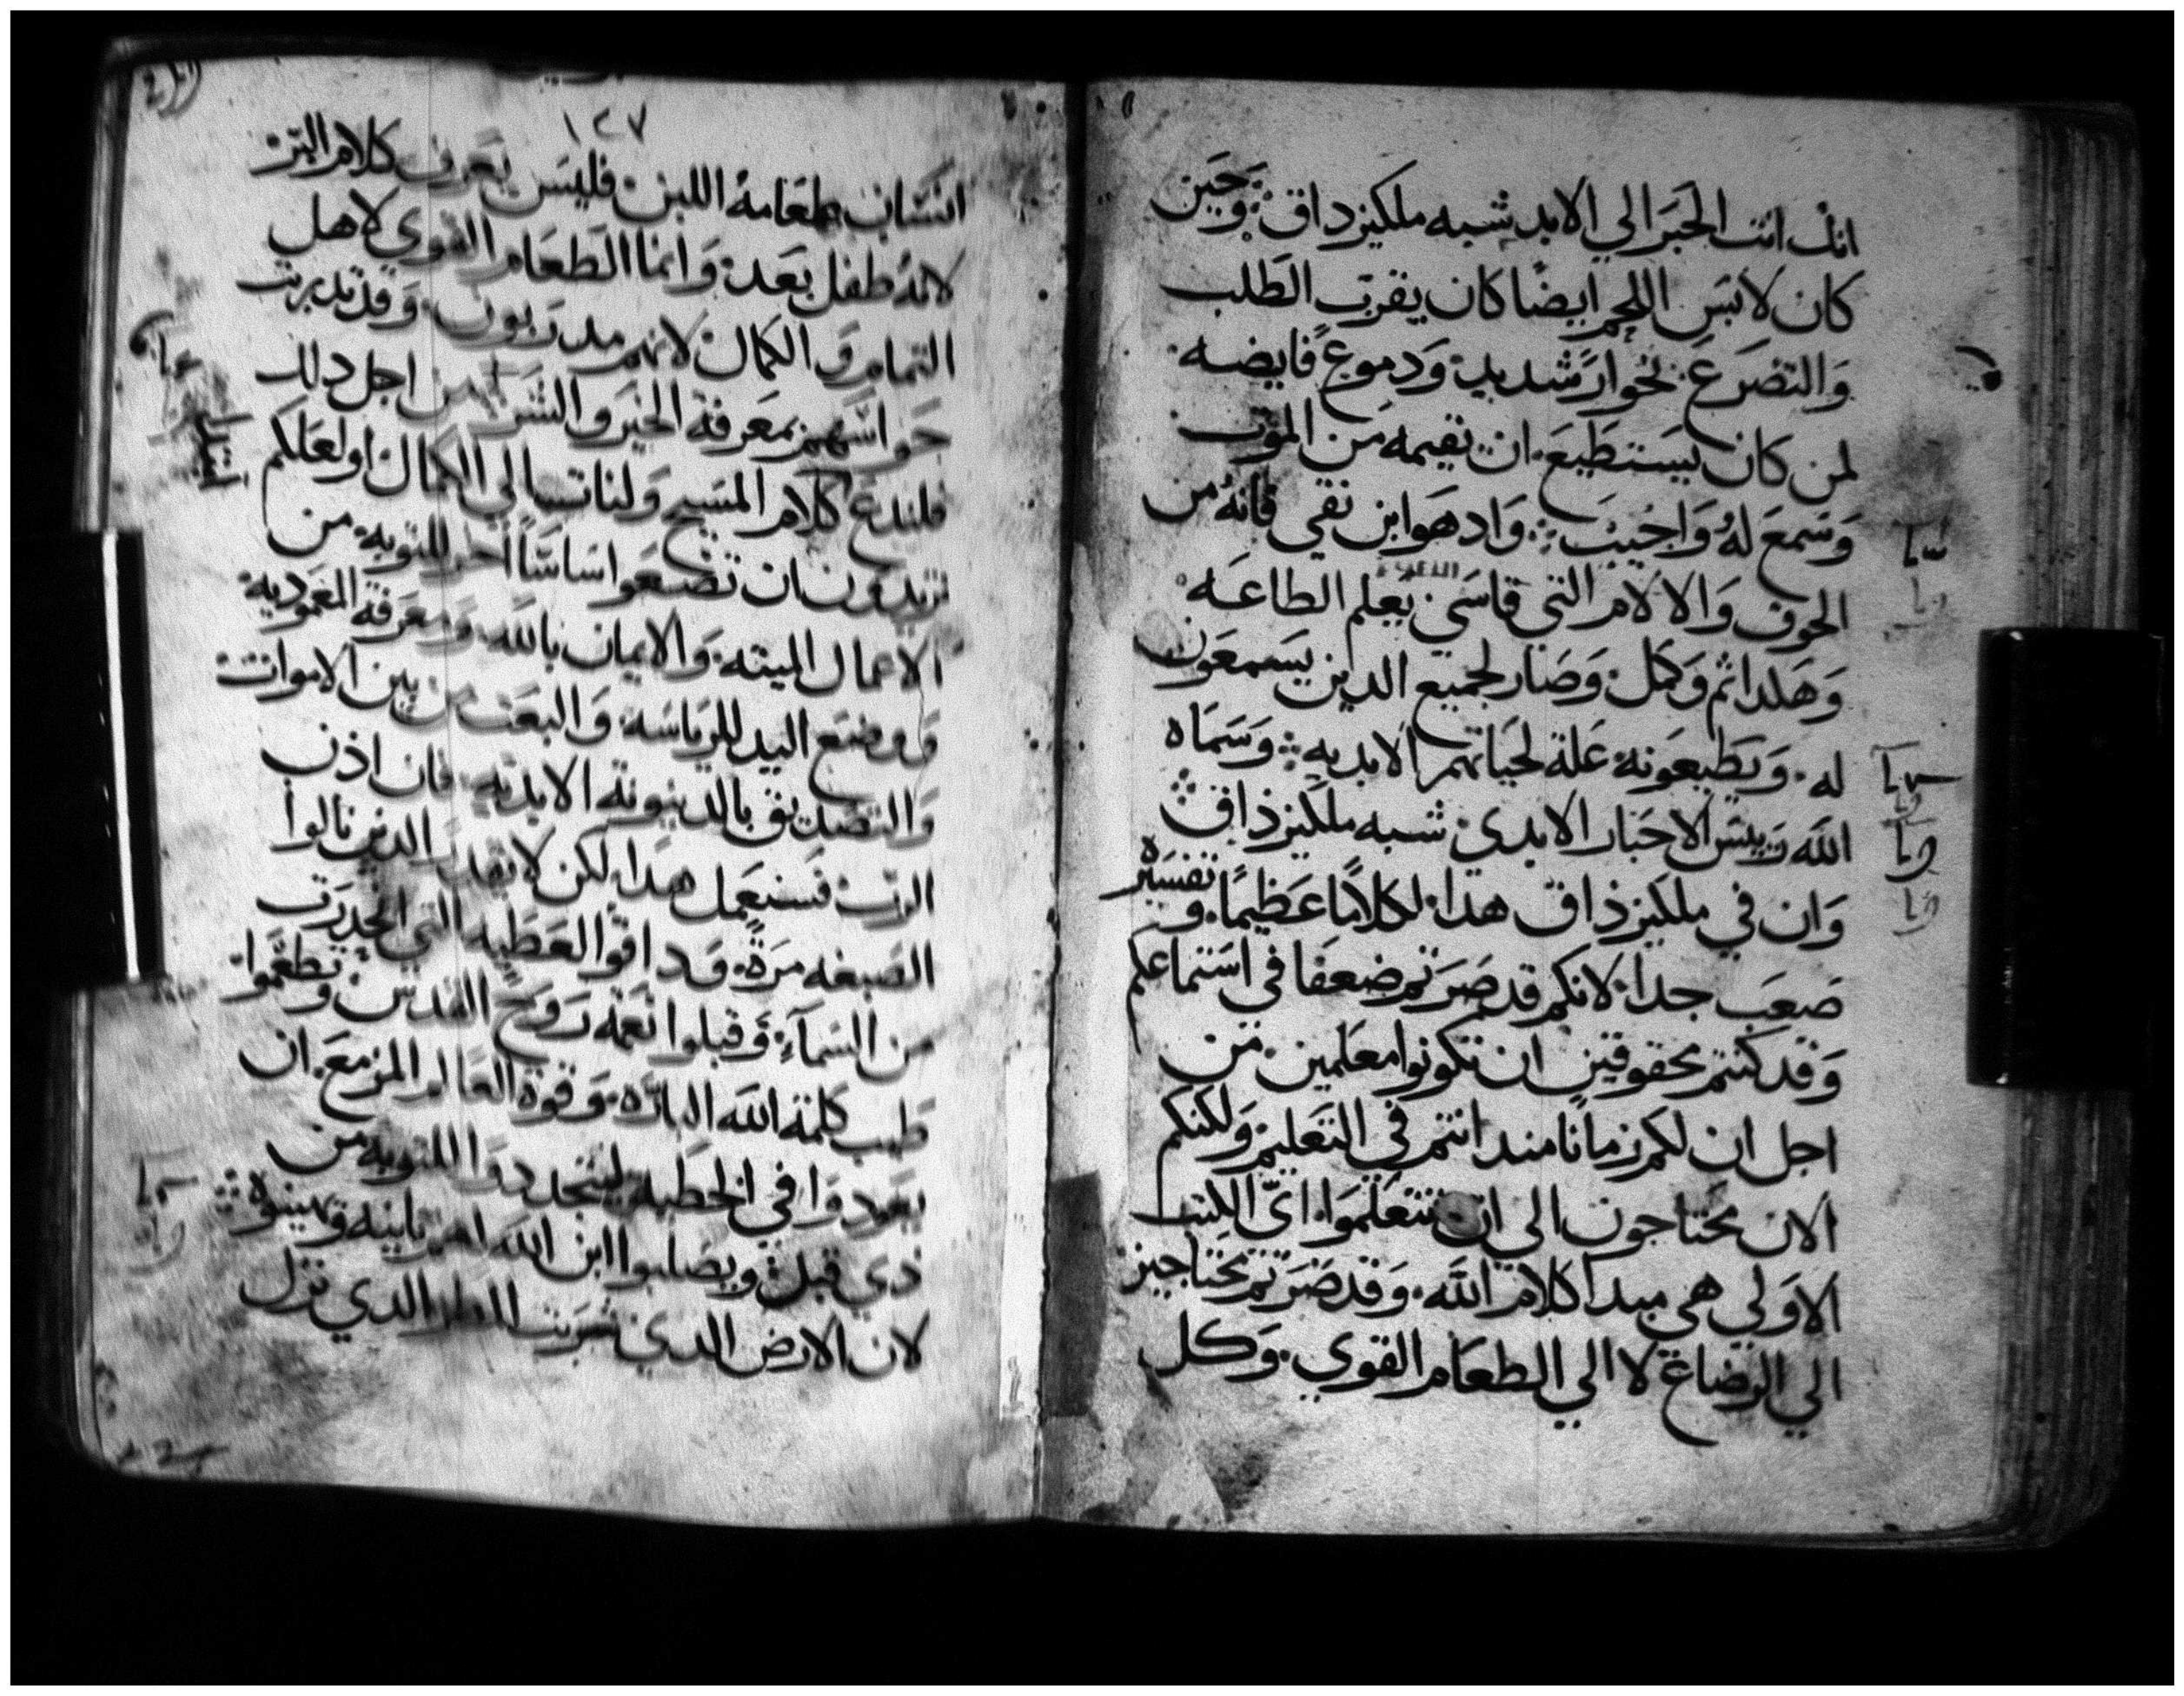 انك انت الحبر الي الابد شبه ملكيزداق وحين
كان لابس اللحم ايضا كان يقرب الطلب
والتضرع بخوار شديد ودموع فايضه
لمن كان يستطيع ان يقيمه من الموت
وسمع له واجيب واد هو ابن نقي فانه من
الخوف والالام التي قاسي يعلم الطاعه
وهكدا تم وكمل وصار لجميع الدين يسمعون
له ويطيعونه علة لحياتهم الابديه وسماه
الله رييس الاحبار الابدي شبه ملكيزذاق
وان في ملكيزذاق هدا لكلاما عظيما و تفسيره
صعب جدا لانكم قد صرتم ضعفا في استماعكم
وقد كنتم محقوقين ان تكونوا معلمين من
اجل ان لكم زمانا مند انتم في التعليم ولكنكم
الان تحتاجون الي ان تتعلموا اي الكتب
الاولي هي مبدا كلام الله وقد صرتم محتاجين
الي الرضاع لا الي الطعام القوي وكل
١٢٧
انسان طعامه اللبن فليس يعرف كلام البر
لانه طفل بعد وانما الطعام القوي لاهل
التمام والكمال لانهم مدربون وقد تدبرت
حواسهم بمعرفة الخير والشر من اجل دلك
فلندع كلام المسيح ولنات الي الكمال او لعلكم
تريدون ان تضعوا اساسا اخر للتوبه من
الاعمال الميته والايمان بالله ومعرفة المعموديه
ووضع اليد للرياسه والبعث من بين الاموات
والتصديق بالدينونة الابديه فان اذن
الرب فسنعمل هدا لكن لا يقدر الدين نالوا
الصبغه مرة وداقوا العطيه التي انحدرت
من السماء وقبلوا نعمة روح القدس وتطعموا
طيب كلمة الله الباره وقوة العالم المزمع ان
يعودوا في الخطيه ليتجددوا للتوبه من
ذي قبل ويصلبوا ابن الله ايضا ثانيه ويهينوه
لان الارض الدي شربت المطر الدي نزل